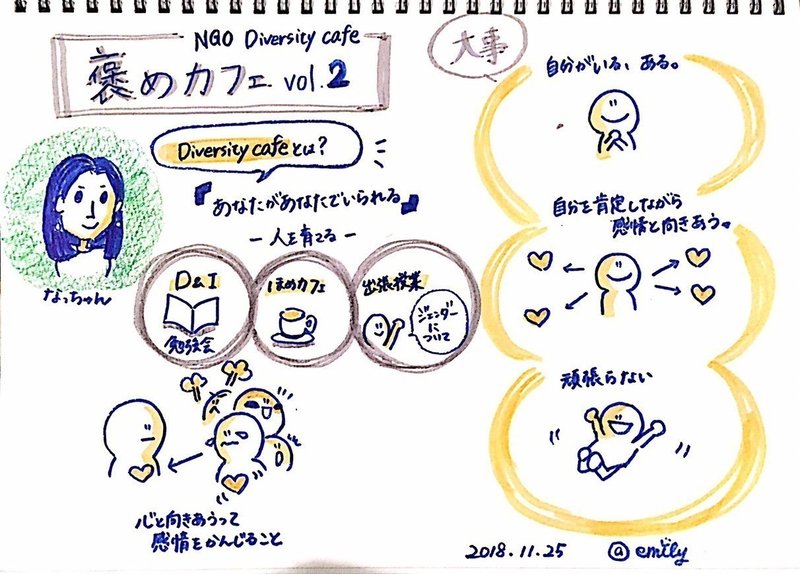 NGO Diversity cafe
褒めカフェ vol.2
Diversity cafeとは?
『あなたがあなたでいられる』
ー 人を育てる ー
なっちゃん
D&I
勉強会
ほめカフェ
出張授業
ジェンダーについて
心と向きあうって
感情をかんじること
大事
自分がいる、ある。
自分を肯定しながら
感情と向きあう。
頑張らない
2018.11.25 @emily